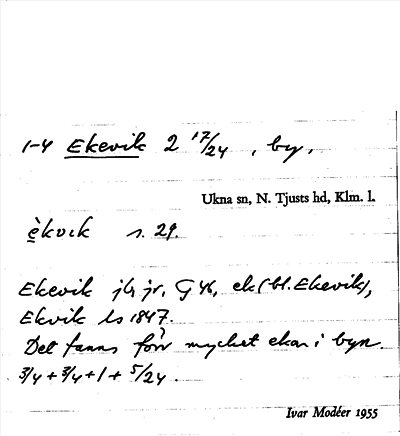 1-4 Ekevik 2 17/24, by.
Ukna sn, N. Tjusts hd, Klm. l.
è̱kvɩk s. 29.
Ekevik jb, jr, G 46, ek (bl. Ekevik),
Ekvik ls 1847.
Det fanns förr mycket ekar i byn.
3/4 + 3/4 + 1 + 5/24.
Ivar Modéer 1955